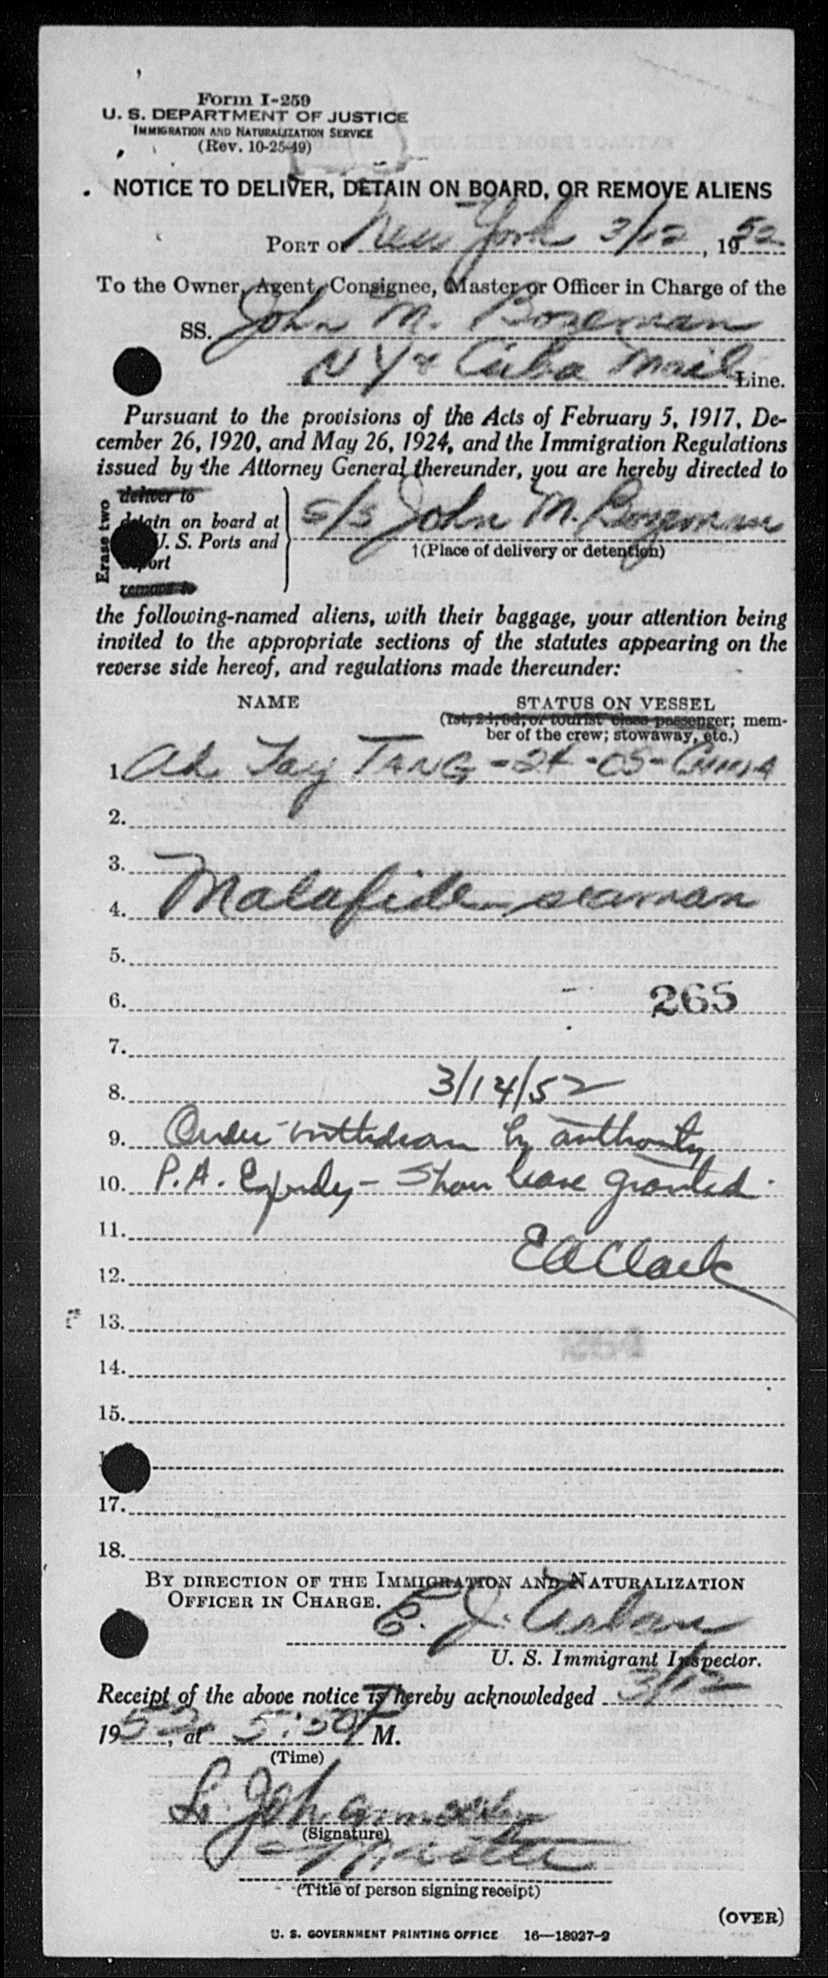 Form I-259
U. S. DEPARTMENT OF JUSTICE
IMMIGRATION AND NATURALIZATION SERVICE
(Rev. 10-25-49)
NOTICE TO DELIVER, DETAIN ON BOARD, OR REMOVE ALIENS
PORT OF New York 3/12, 1952
To the Owner, Agent, Consignee, Master or Officer in Charge of the
SS. John M. Bozeman
NY & Cuba Mail Line.
Pursuant to the provisions of the Acts of February 5, 1917, De-
cember 26, 1920, and May 26, 1924, and the Immigration Regulations
issued by the Attorney General thereunder, you are hereby directed to
Erase two
deliver to
detain on board at
U. S. Ports and
deport
remove to
S/S John M. Bozeman
†(Place of delivery or detention)
the following-named aliens, with their baggage, your attention being
invited to the appropriate sections of the statutes appearing on the
reverse side hereof, and regulations made thereunder:
NAME STATUS ON VESSEL
(1st, 2d, 3d, or tourist class passenger; mem-
ber of the crew; stowaway, etc.)
1. Ah Tay TANG - 24 - OS - China
2.
3.
4. Malafide seaman
5.
6. 265
7.
8. 3/14/52
9. Order withdrawn by authority
10. P.A. - Shore leave granted.
11. E A Clark
12.
13.
14.
15.
17.
18.
BY DIRECTION OF THE IMMIGRATION AND NATURALIZATION
OFFICER IN CHARGE.
E. J.
U. S. Immigrant Inspector.
Receipt of the above notice is hereby acknowledged 3/12
1952, at 5:50 P M.
(Time)
(Signature)
Master
(Title of person signing receipt)
(OVER)
U. S. GOVERNMENT PRINTING OFFICE 16—18927-2